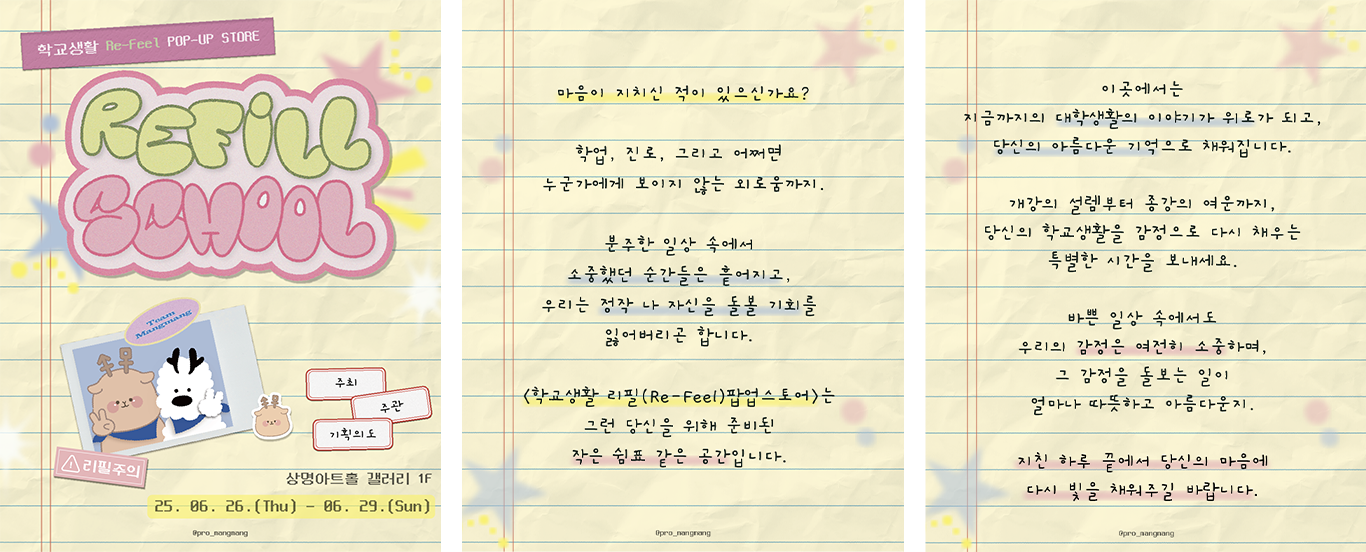 학교생활 Re-Feel POP-UP STORE
REFILL
SCHOOL
Team
Mangmang
주최
주관
기획의도
리필주의
상명아트홀 갤러리 1F
25. 06. 26.(Thu) - 06. 29.(Sun)
@pro_mangmang
마음이 지치신 적이 있으신가요?
학업, 진로, 그리고 어쩌면
누군가에게 보이지 않는 외로움까지.
분주한 일상 속에서
소중했던 순간들은 흩어지고,
우리는 정작 나 자신을 돌볼 기회를
잃어버리곤 합니다.
<학교생활 리필(Re-Feel)팝업스토어>는
그런 당신을 위해 준비된
작은 쉼표 같은 공간입니다.
@pro_mangmang
이곳에서는
지금까지의 대학생활의 이야기가 위로가 되고,
당신의 아름다운 기억으로 채워집니다.
개강의 설렘부터 종강의 여운까지,
당신의 학교생활을 감정으로 다시 채우는
특별한 시간을 보내세요.
바쁜 일상 속에서도
우리의 감정은 여전히 소중하며,
그 감정을 돌보는 일이
얼마나 따뜻하고 아름다운지.
지친 하루 끝에서 당신의 마음에
다시 빛을 채워주길 바랍니다.
@pro_mangmang